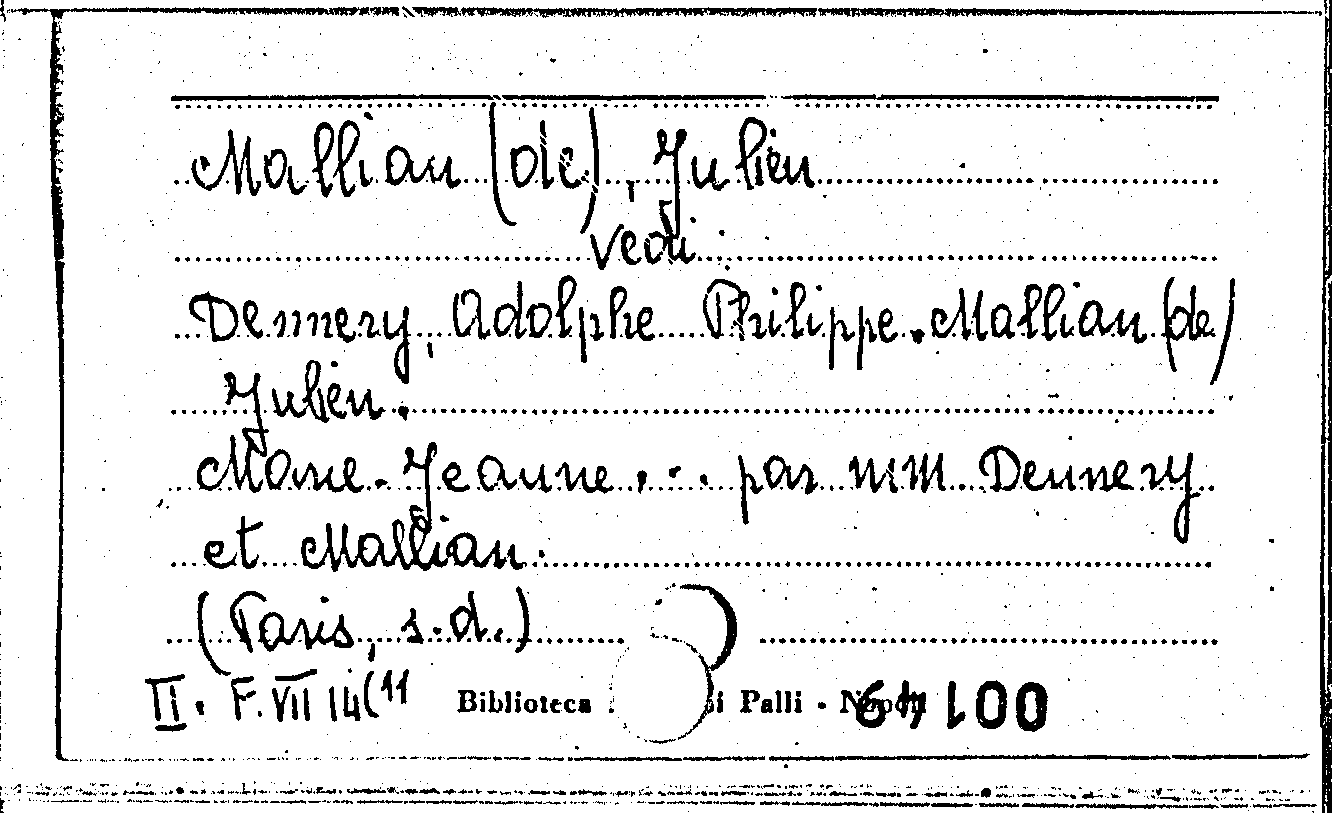 Mallian (de), Julien
vedi:
Dennery, Adolphe Philippe. Mallian (de)
Julien.
Marie-Jeanne... par MM Dennery
et Mallian.
(Paris, s.d.)
II. F. VII 14(11
Biblioteca Palli - 00149